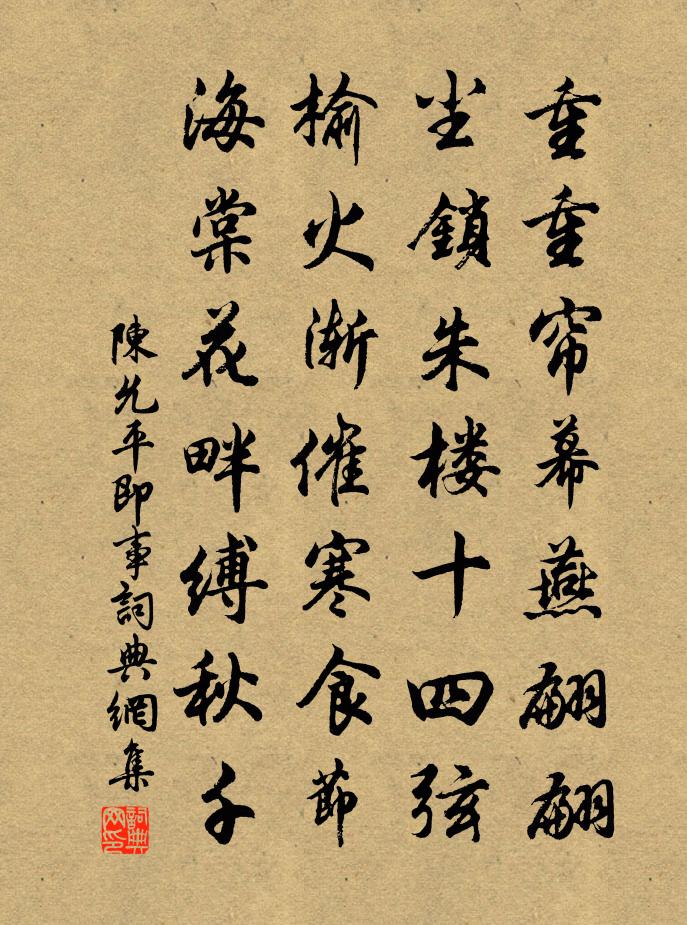 重重帘幕燕翩翩
尘鎖朱楼十四弦
榆火渐催寒食節
海棠花畔缚秋千
陳允平即事詞典網集
詞典网印